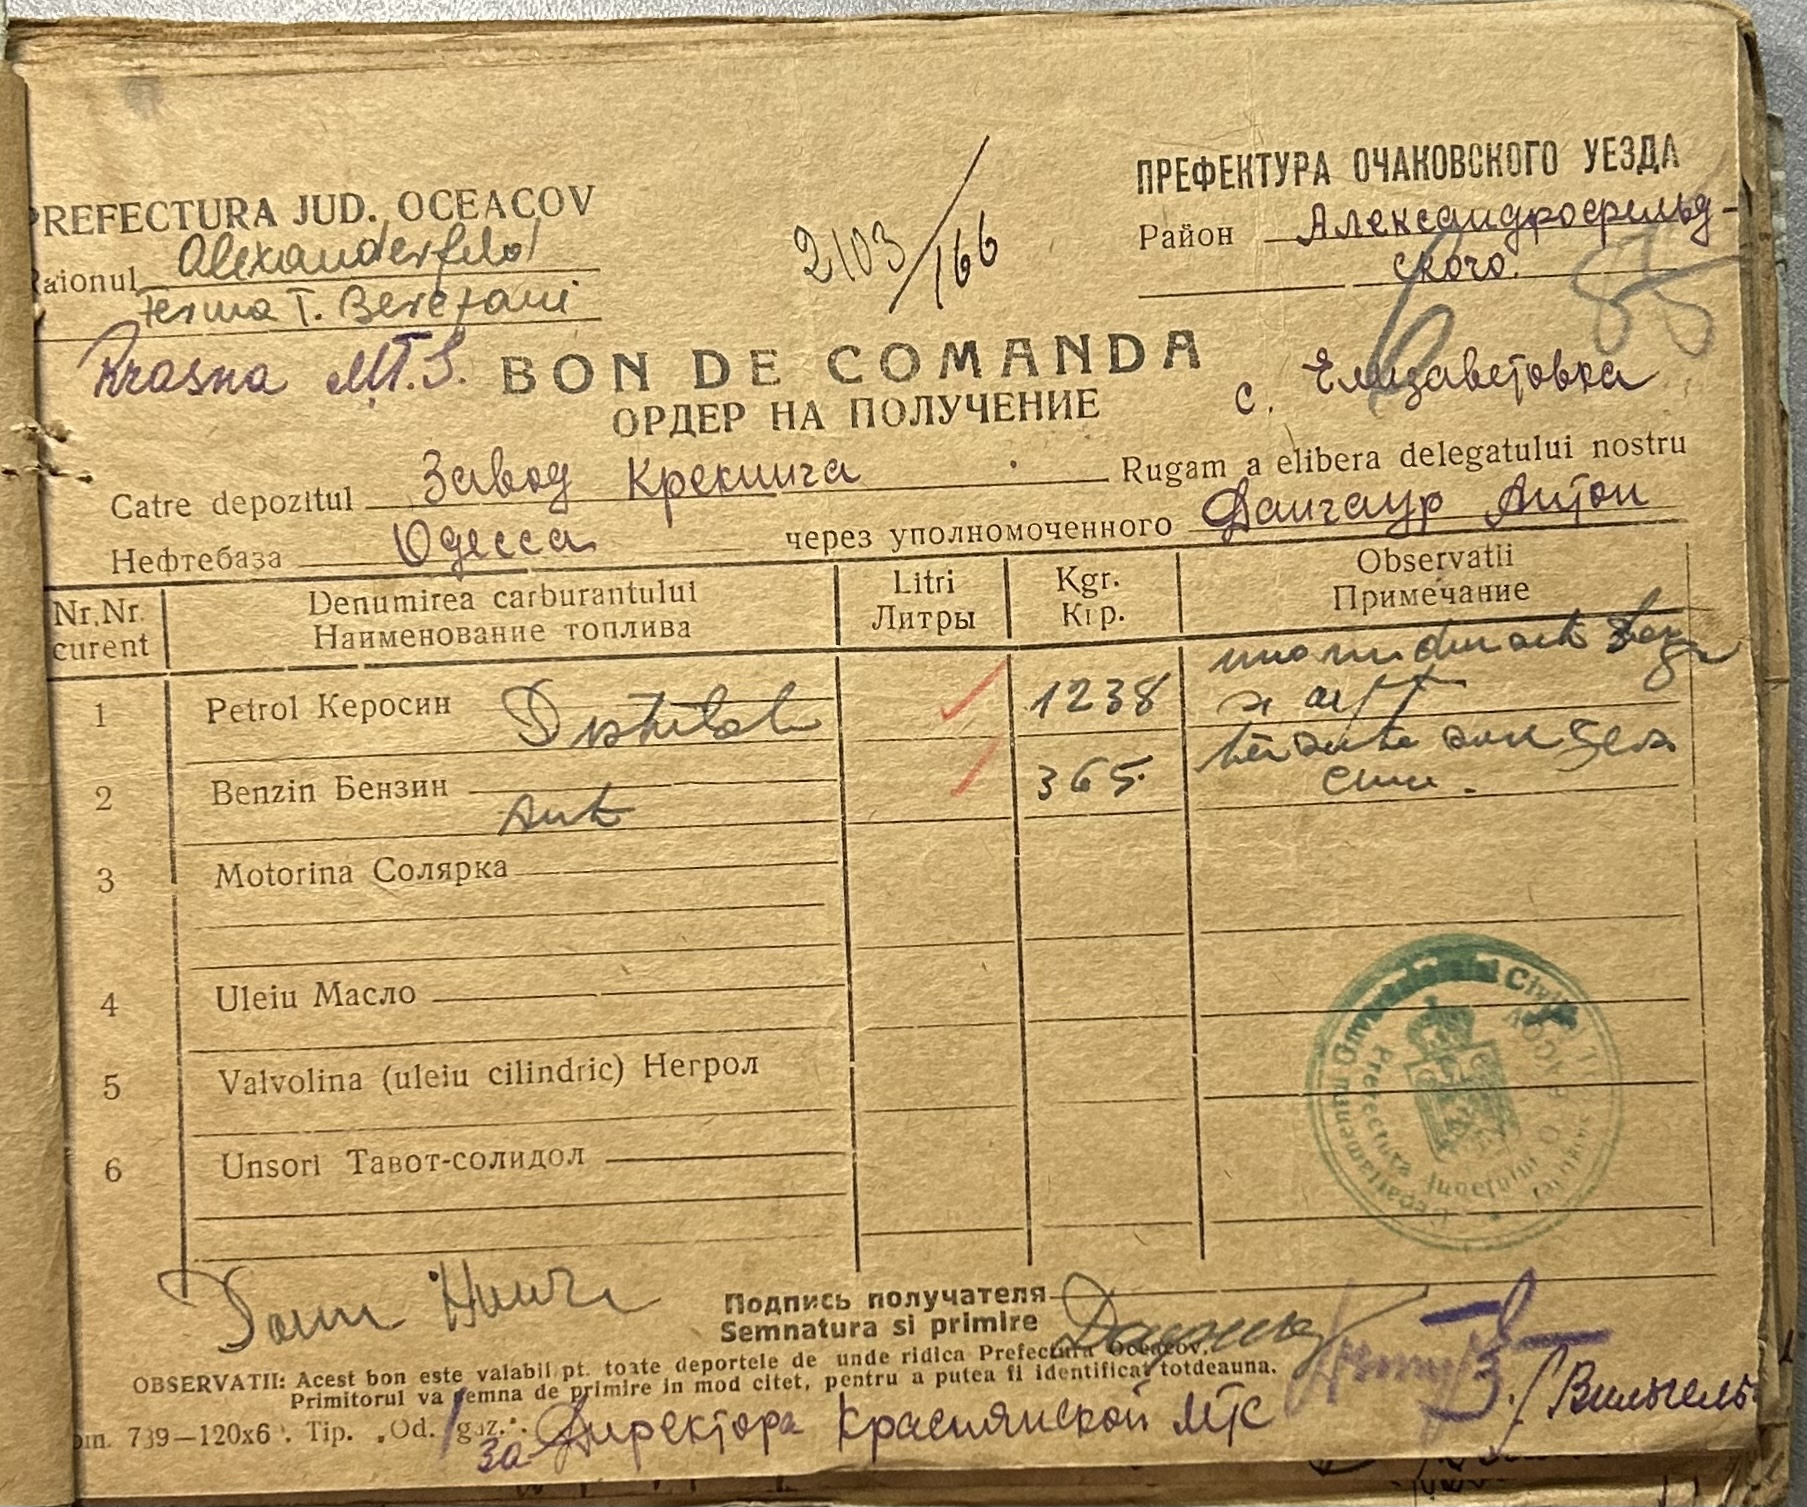 PREFECTURA JUD. OCEACOV
Raionul Alexanderfeld
Ferma T. Berezani
Krasna M.T.S.
2103/166
ПРЕФЕКТУРА ОЧАКОВСКОГО УЕЗДА
Район Александрофельд-
ского.
85
BON DE COMANDA
ОРДЕР НА ПОЛУЧЕНИЕ
с. Елизаветовка
Catre depozitul Завод Крекинга Rugam a elibera delegatului nostru
Нефтебаза Одесса через уполномоченного Дангаур Антон
Nr. Nr. curent
Denumirea carburantului
Наименование топлива
Litri
Литры
Kgr.
Кгр.
Observatii
Примечание
1 Petrol Керосин Distilat 1238
2 Benzin Бензин 365
3 Motorina Солярка
4 Uleiu Масло
5 Valvolina (uleiu cilindric) Негрол
6 Unsori Тавот-солидол
Guvernamantul Civil
Prefectura Judetului
Подпись получателя
Semnatura si primire
OBSERVATII: Acest bon este valabil pt. toate deportele de unde ridica Prefectura Oceacov.
Primitorul va semna de primire in mod citet, pentru a putea fi identificat totdeauna.
739—120x6 . Tip. „Od. gaz.".
за Директора Краснянской МТС